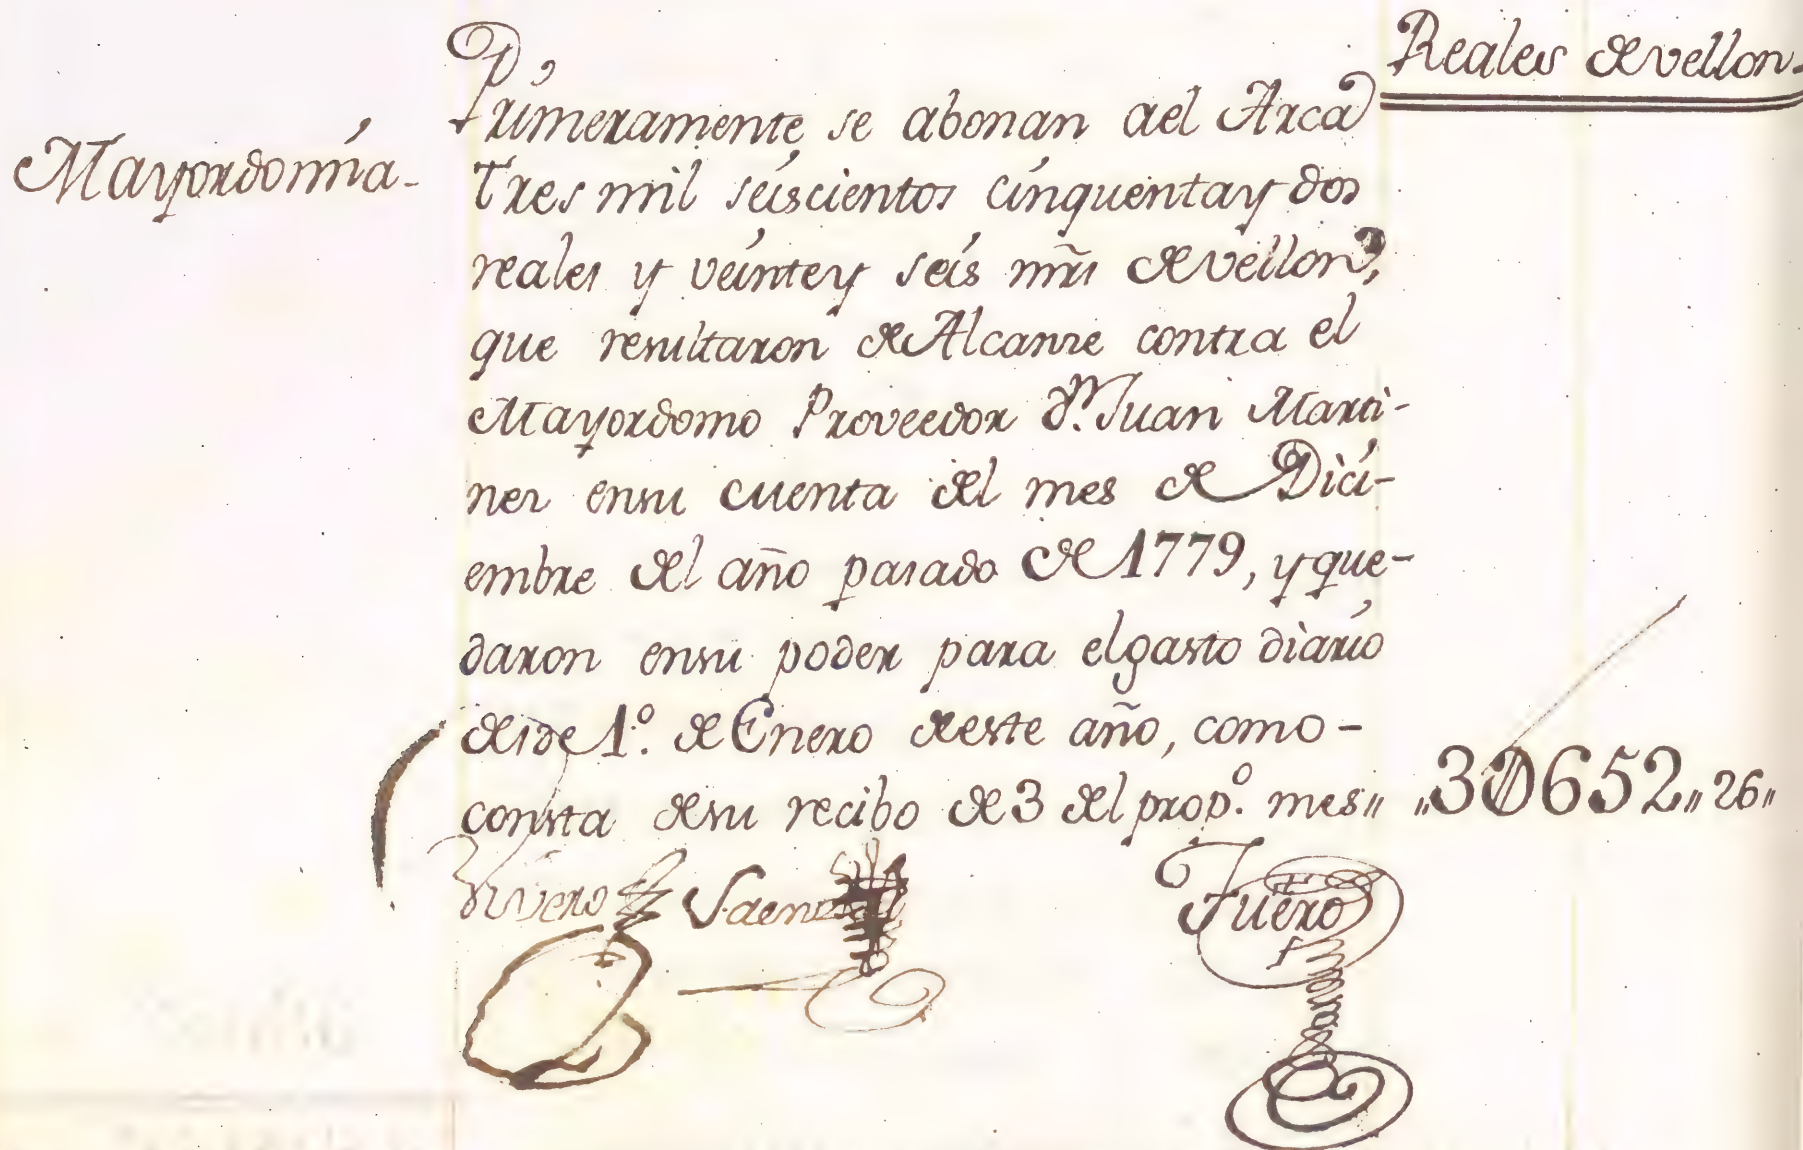 Reales de vellon.
Mayordomía.
Primeramente se abonan ael Arca
Tres mil seiscientos cinquenta y dos
reales y veinte y seis mrs de vellon,
que resultaron de Alcanze contra el
Mayordomo Proveedor Dn. Juan Marti-
nez en su cuenta del mes de Dici-
embre del año pasado de 1779, y que-
daron en su poder para el gasto diario
desde 1º. de Enero de este año, como -
consta de su recibo de 3 del propº. mes„ „30652„26„
Rivero Saenz Fuero